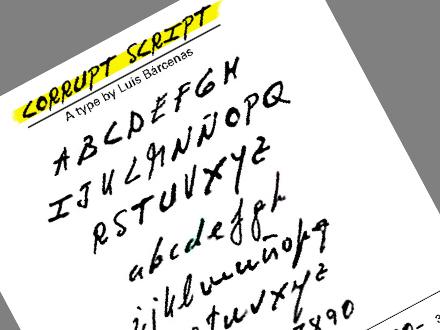 CORRUPT SCRIPT
A type by Luis Bárcenas
ABCDEFGH
IJKLMNÑOPQ
RSTUVXYZ
abcdefgh
ijklmnñopq
stuvxyz
7890